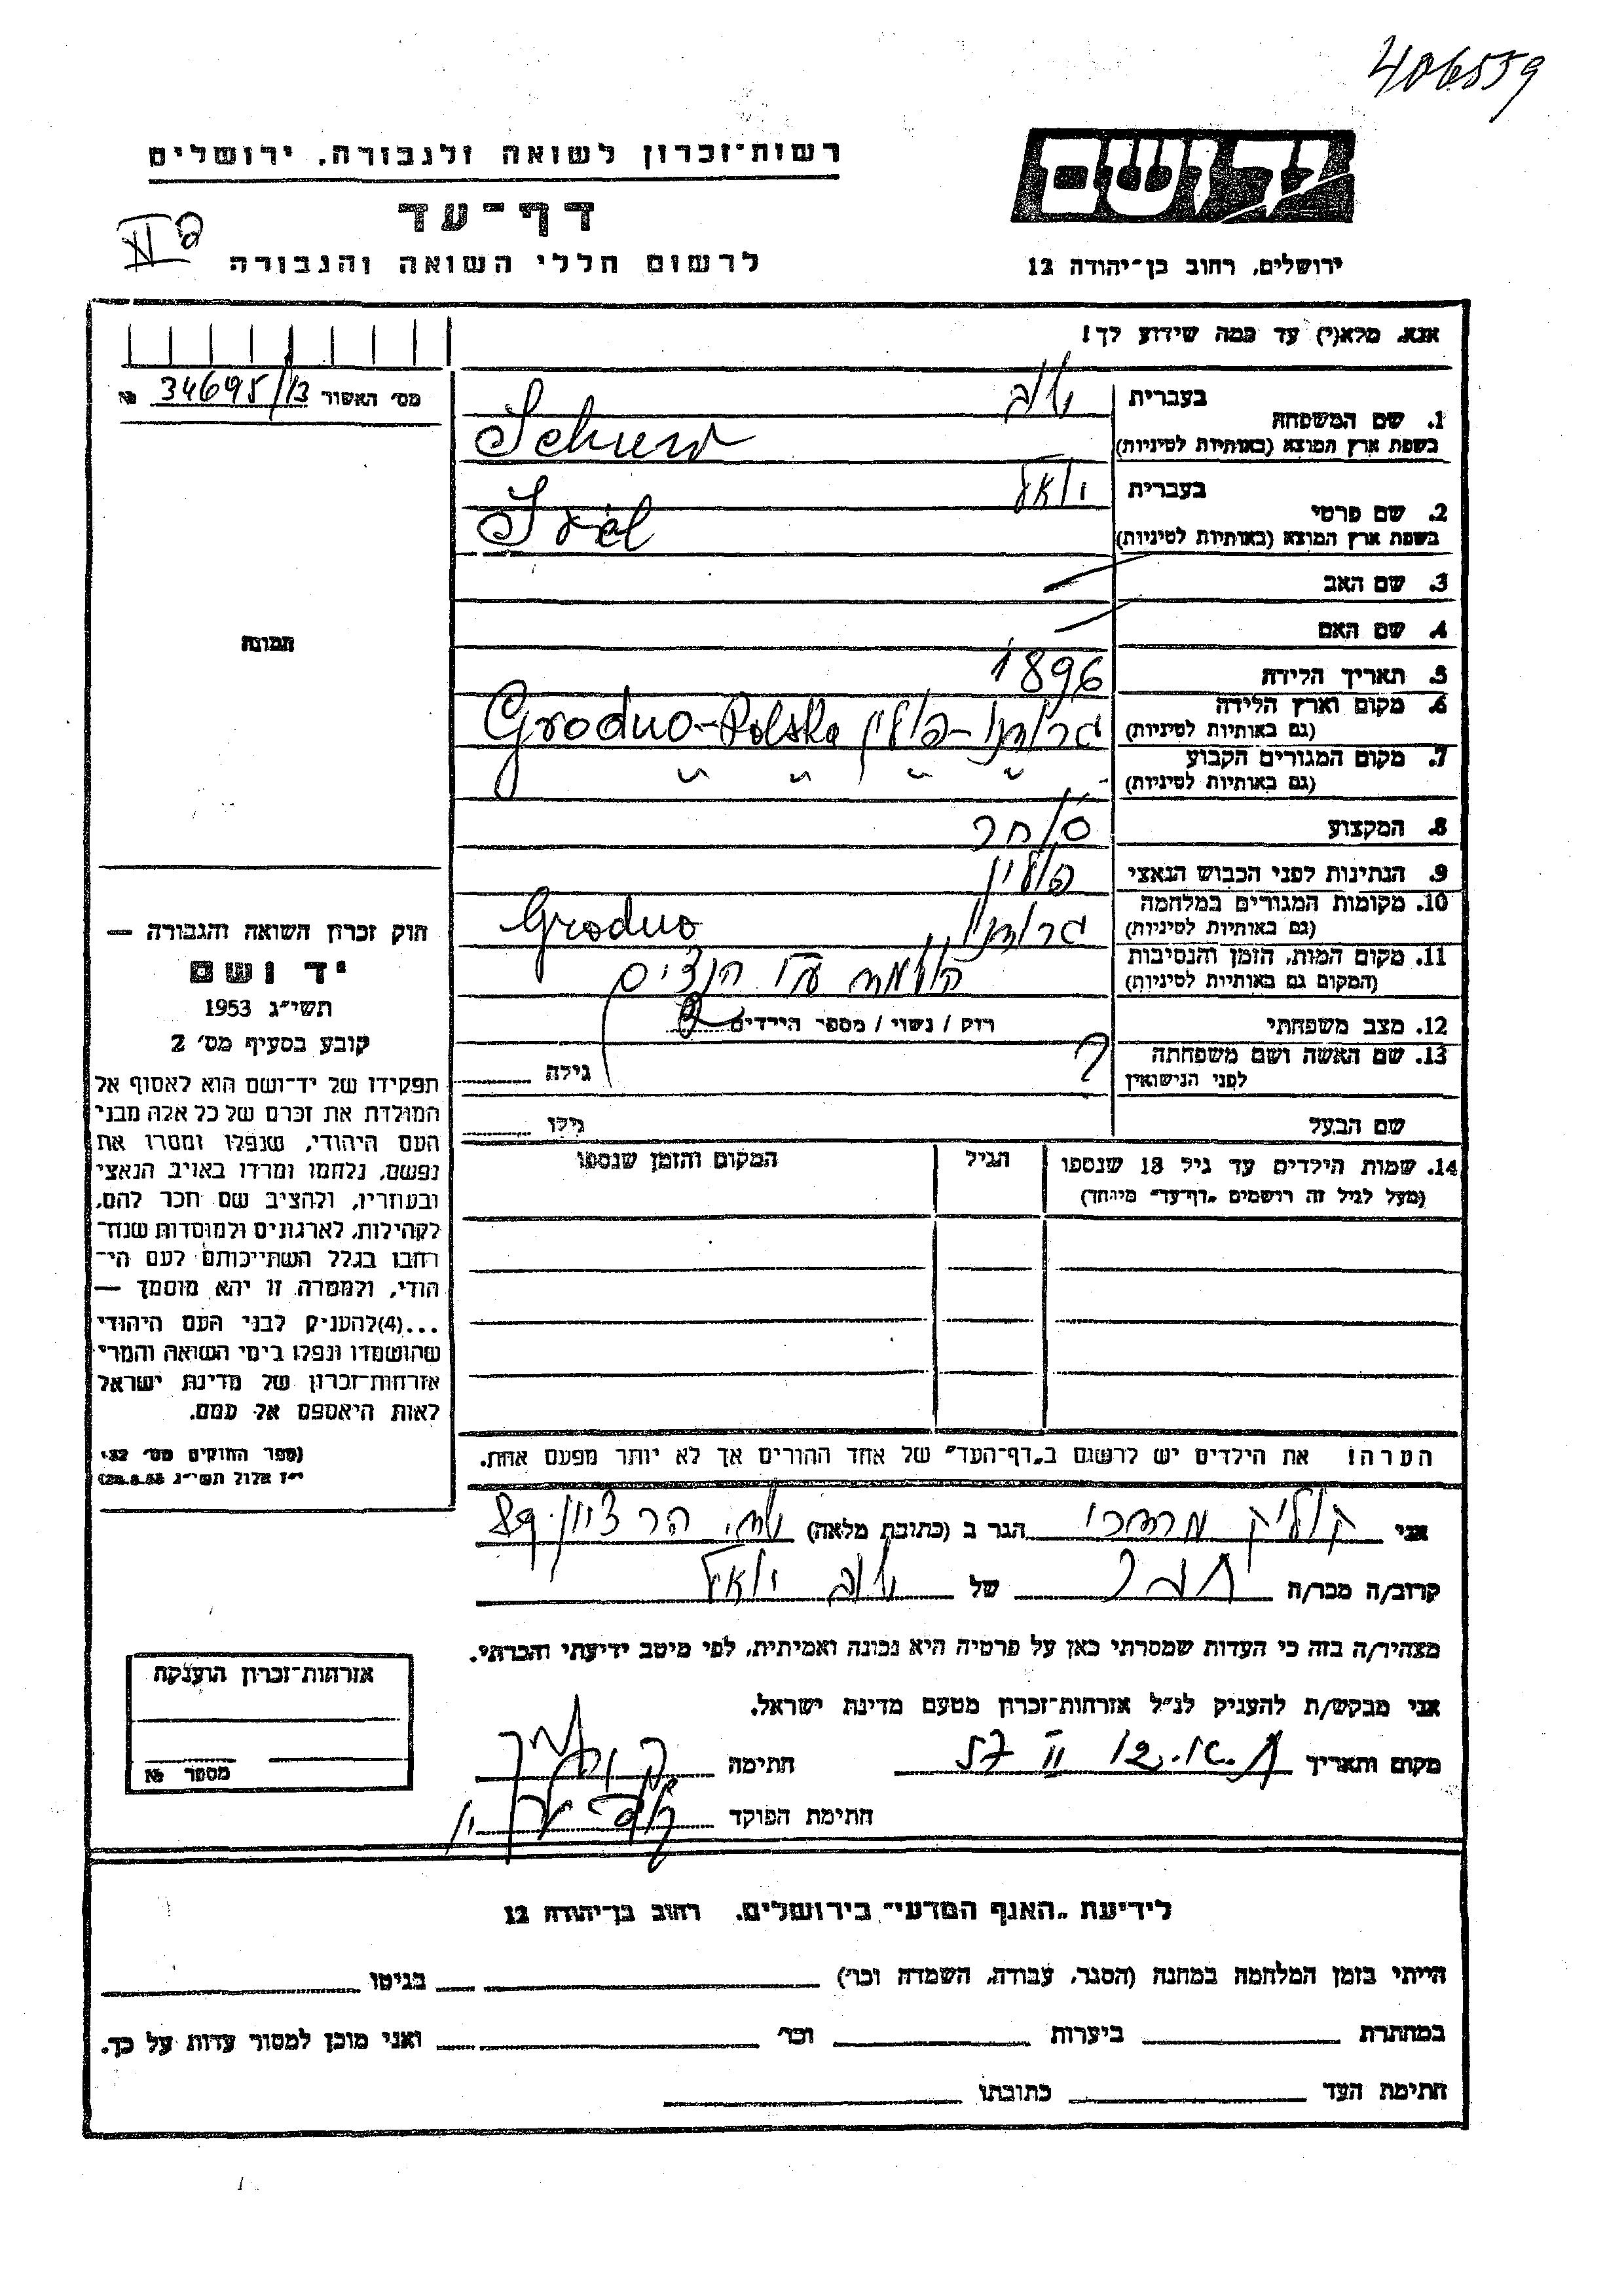 406559
רשות־זכרון לשואה ולגבורה, ירושלים
יד ושם
דף־עד
לרשום חללי השואה והגבורה
ירושלים, רחוב בן־יהודה 12
אנא, מלא(י) עד כמה שידוע לך!
מס׳ האשור 34695/13 №
1. שם המשפחה
בעברית
בשפת ארץ המוצא (באותיות לטיניות)
2. שם פרטי
בעברית יואל
בשפת ארץ המוצא (באותיות לטיניות)
3. שם האב
4. שם האם
5. תאריך הלידה 1896
6. מקום וארץ הלידה
(גם באותיות לטיניות) גרודנו - פולין Grodno - Polska
7. מקום המגורים הקבוע
(גם באותיות לטיניות) " " " "
8. המקצוע סוחר
9. הנתינות לפני הכבוש הנאצי פולין
10. מקומות המגורים במלחמה
(גם באותיות לטיניות) גרודנו Grodno
11. מקום המות, הזמן והנסיבות
(המקום גם באותיות לטיניות) הנצים
12. מצב משפחתי רוק / נשוי / מספר הילדים
13. שם האשה ושם משפחתה
לפני הנישואין ? גילה
שם הבעל גילו
14. שמות הילדים עד גיל 18 שנספו
(מעל לגיל זה רושמים „דף־עד״ מיוחד)
הגיל
המקום והזמן שנספו
הערה! את הילדים יש לרשום ב„דף־העד״ של אחד ההורים אך לא יותר מפעם אחת.
תמונה
חוק זכרון השואה והגבורה —
יד ושם
תשי״ג 1953
קובע בסעיף מס׳ 2
תפקידו של יד־ושם הוא לאסוף אל
המולדת את זכרם של כל אלה מבני
העם היהודי, שנפלו ומסרו את
נפשם, נלחמו ומרדו באויב הנאצי
ובעוזריו, ולהציב שם וזכר להם,
לקהילות, לארגונים ולמוסדות שנח־
רבו בגלל השתייכותם לעם הי־
הודי, ולמטרה זו יהא מוסמך —
...(4)להעניק לבני העם היהודי
שהושמדו ונפלו בימי השואה והמרי
אזרחות־זכרון של מדינת ישראל
לאות היאספם אל עמם.
(ספר החוקים מס׳ 132
י״ז אלול תשי״ג 28.8.53)
אני קוליק מרדכי הגר ב (כתובת מלאה) שכ. הר ציון 89
קרוב/ה מכר/ה חבר של יואל
מצהיר/ה בזה כי העדות שמסרתי כאן על פרטיה היא נכונה ואמיתית, לפי מיטב ידיעתי והכרתי.
אני מבקש/ת להעניק לנ״ל אזרחות־זכרון מטעם מדינת ישראל.
מקום ותאריך ת.א. 12 II 57 חתימה
חתימת הפוקד
אזרחות־זכרון הוענקה
מספר №
לידיעת „האגף המדעי״ בירושלים, רחוב בן־יהודה 12
הייתי בזמן המלחמה במחנה (הסגר, עבודה, השמדה וכו׳) בגיטו
במחתרת ביערות וכו׳ ואני מוכן למסור עדות על כך.
חתימת העד כתובתו